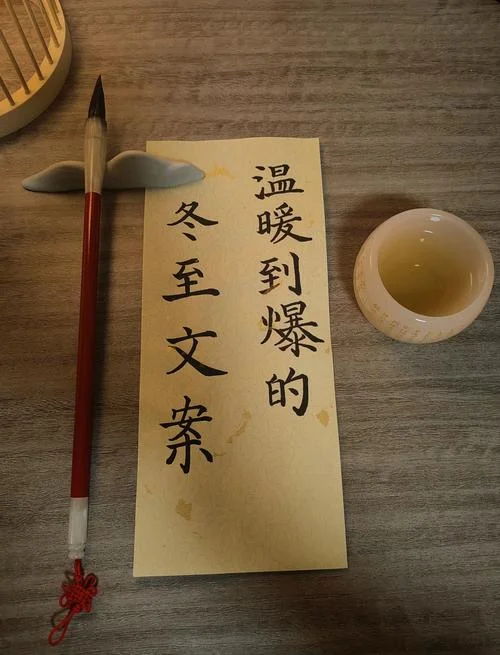 温暖到爆的
冬至文案